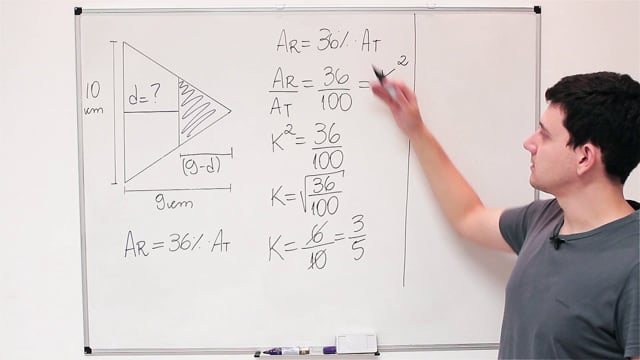 10
cm
d=?
(9-d)
9cm
AR=36%·AT
AR=36%·AT
AR/AT=36/100=K²
K²=36/100
K=√36/100
K=6/10=3/5